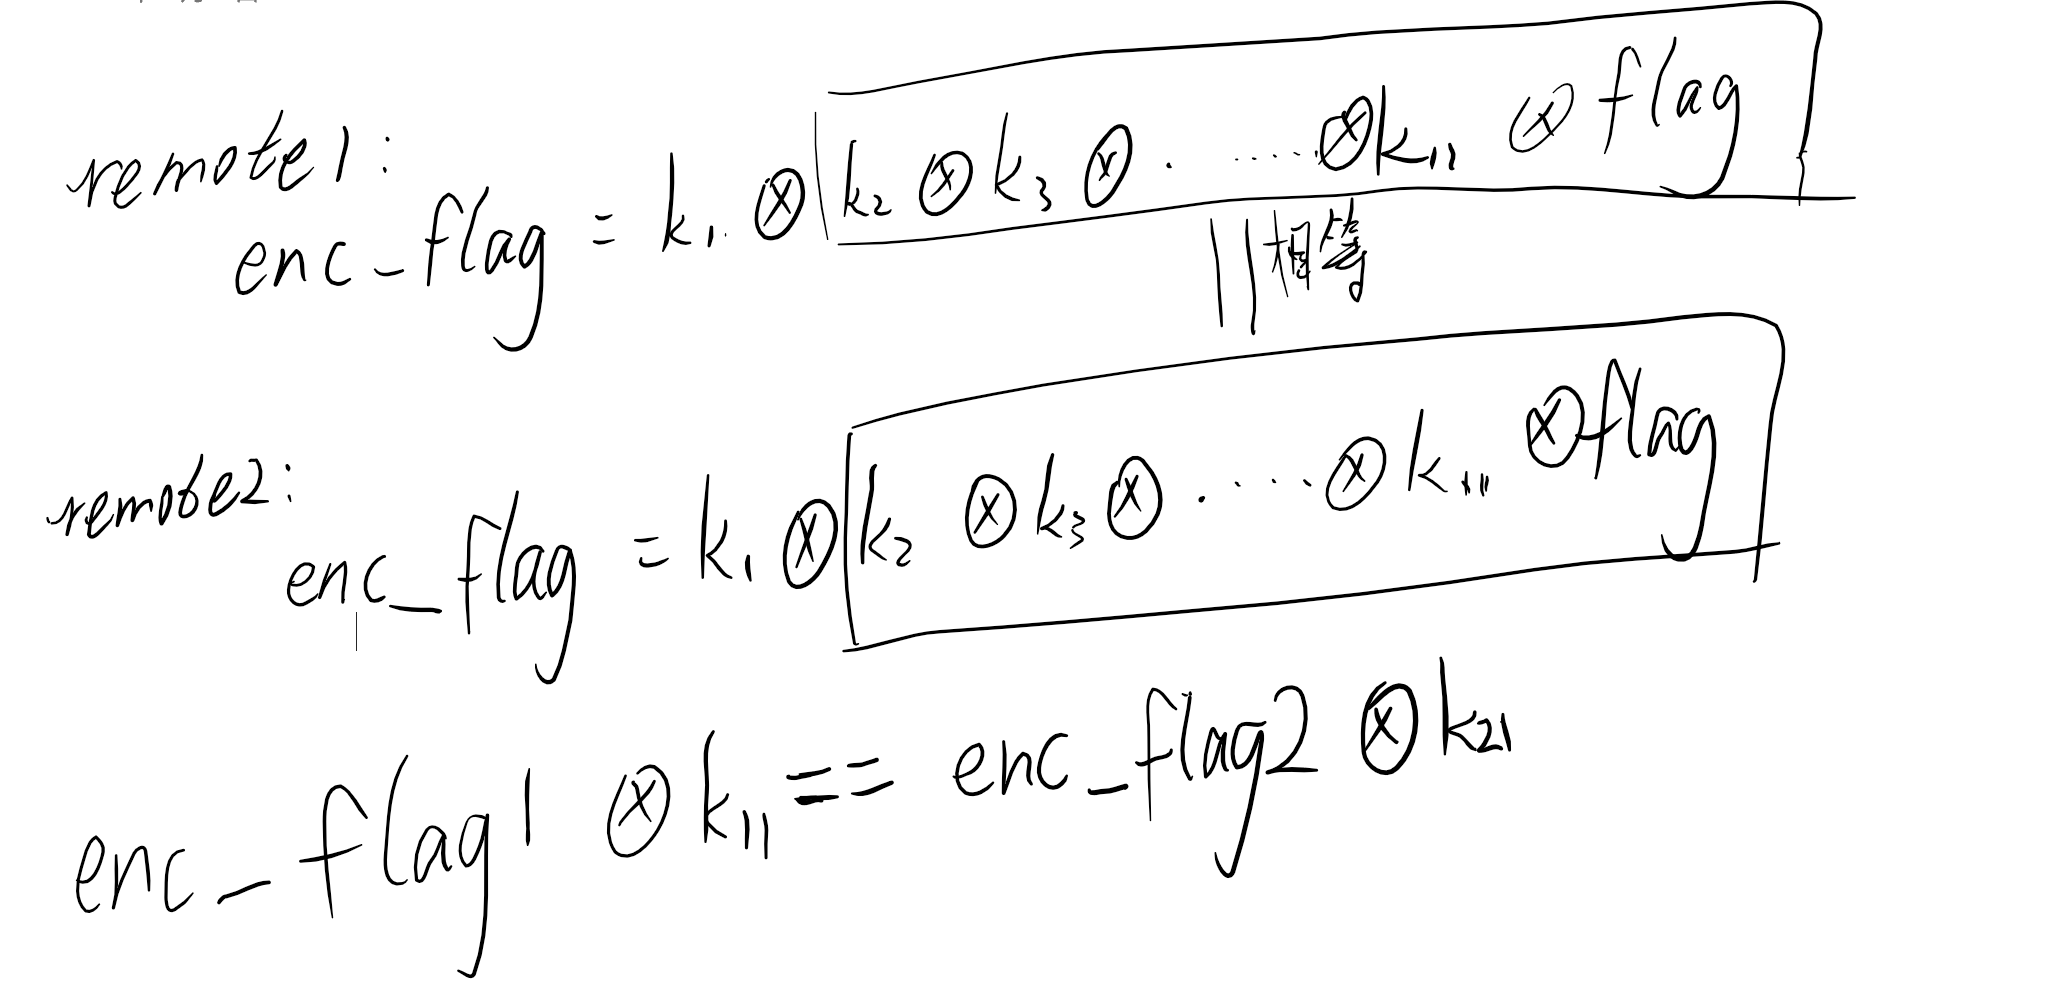 remote1:
enc_flag = k₁ ⊗ k₂ ⊗ k₃ ⊗ ...... ⊗ k₁₁ ⊗ flag
|| 相等
remote2:
enc_flag = k₁ ⊗ k₂ ⊗ k₃ ⊗ ..... ⊗ k₁₁ ⊗ flag
enc_flag1 ⊗ k₁₁ == enc_flag2 ⊗ k₂₁